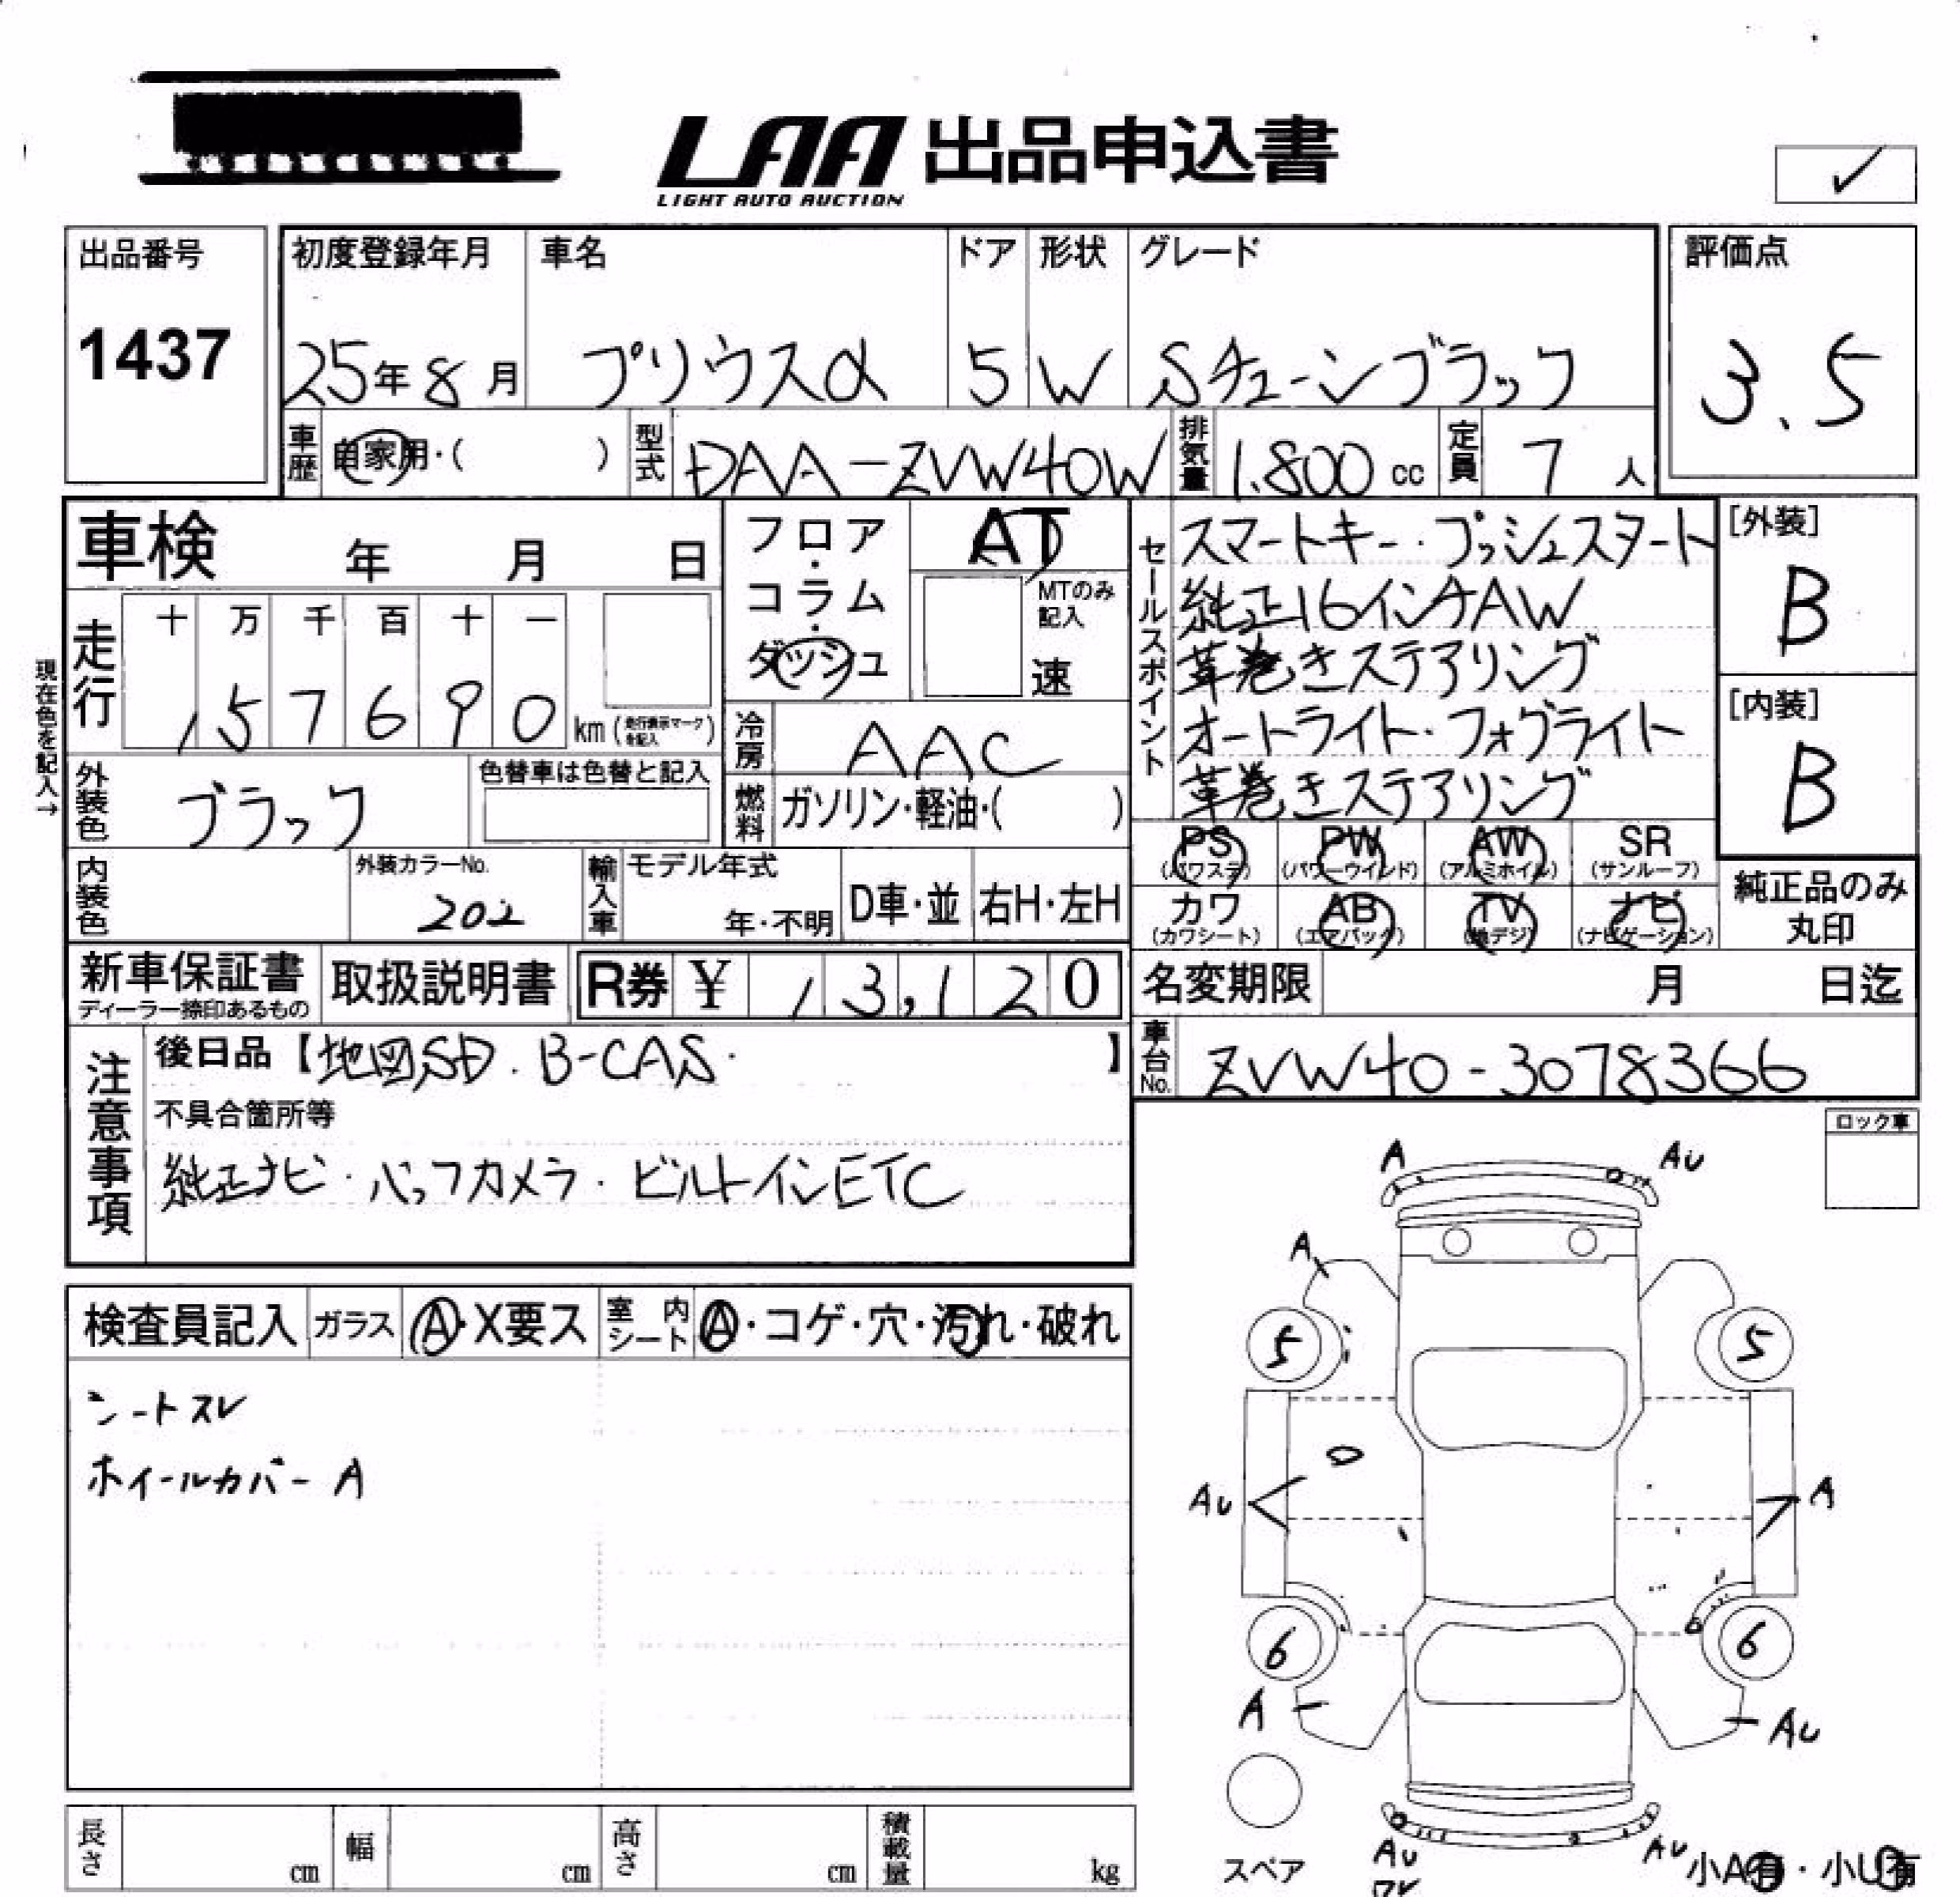 LAA 出品申込書
LIGHT AUTO AUCTION
✓
出品番号
1437
初度登録年月
25年8月
車名
プリウスα
ドア
5
形状
W
グレード
Sチューンブラック
評価点
3.5
車歴
自家用・( )
型式
DAA-ZVW40W
排気量
1.800 cc
定員
7 人
車検 年 月 日
フロア・コラム・ダッシュ
AT
MTのみ記入
速
セールスポイント
スマートキー・プッシュスタート
純正16インチAW
革巻きステアリング
オートライト・フォグライト
革巻きステアリング
[外装]
B
[内装]
B
現在色を記入→
走行
十 万 千 百 十 一
1 5 7 6 9 0 km (走行表示マークを記入)
冷房
AAC
外装色
ブラック
色替車は色替と記入
燃料
ガソリン・軽油・( )
PS (パワステ)
PW (パワーウインド)
AW (アルミホイル)
SR (サンルーフ)
カワ (カワシート)
AB (エアバッグ)
TV (地デジ)
ナビ (ナビゲーション)
純正品のみ丸印
内装色
外装カラーNo.
202
輸入車
モデル年式
年・不明
D車・並
右H・左H
新車保証書
ディーラー捺印あるもの
取扱説明書
R券 ¥ 13,120
名変期限 月 日迄
車台No.
ZVW40-3078366
注意事項
後日品【地図SD. B-CAS. 】
不具合箇所等
純正ナビ・バックカメラ・ビルトインETC
ロック車
検査員記入
ガラス
A・X要ス
室内シート
A・コゲ・穴・汚れ・破れ
シートスレ
ホイールカバーA
A
AU
A
5
5
AU
A
6
6
A
AU
スペア
AU
ワレ
AU
小A有・小U有
長さ cm
幅 cm
高さ cm
積載量 kg